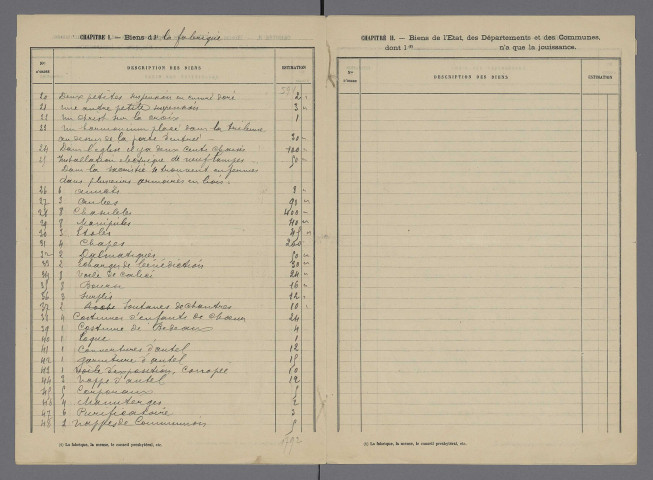 CHAPITRE I. — Biens d e la fabrique
Nos d'ordre DESCRIPTION DES BIENS ESTIMATION
20 Deux petites suspensions en cuivre doré 2
21 une autre petite suspension 3
22 un christ sur la croix 1
23 un harmonium placé dans la tribune
au dessus de la porte d'entrée 30
24 Dans l'église il y a deux cents chaises 100
25 Installation électrique de neuf lampes 50
Dans la sacristie se trouvent enfermés
dans plusieurs armoires en bois
26 6 amicts 3
27 3 aubes 90
28 8 Chasubles 400
29 8 Manipules 40
30 9 Etoles 45
31 4 Chapes 260
32 2 Dalmatiques 50
33 2 Echarpes de bénédiction 30
34 8 voile de calice 24
35 8 Bourse 16
36 3 surplis 12
37 2 Soutanes de chantres 10
38 4 Costumes d'enfants de Chœur 24
39 1 Costume de Bedeau 4
40 1 toque 1
41 1 Couvertures d'autel 12
42 1 garniture d'autel 15
43 1 Voile d'exposition, Conopée 10
44 3 nappe d'autel 12
45 5 Corporaux 5
46 4 Manuterges 2
47 6 Purificatoire 3
48 2 nappes de Communion 5
(1) La fabrique, la mense, le conseil presbytéral, etc.
CHAPITRE II. — Biens de l'Etat, des Départements et des Communes,
dont l (1) n'a que la jouissance.
Nos d'ordre DESCRIPTION DES BIENS ESTIMATION
(1) La fabrique, la mense, le conseil presbytéral, etc.